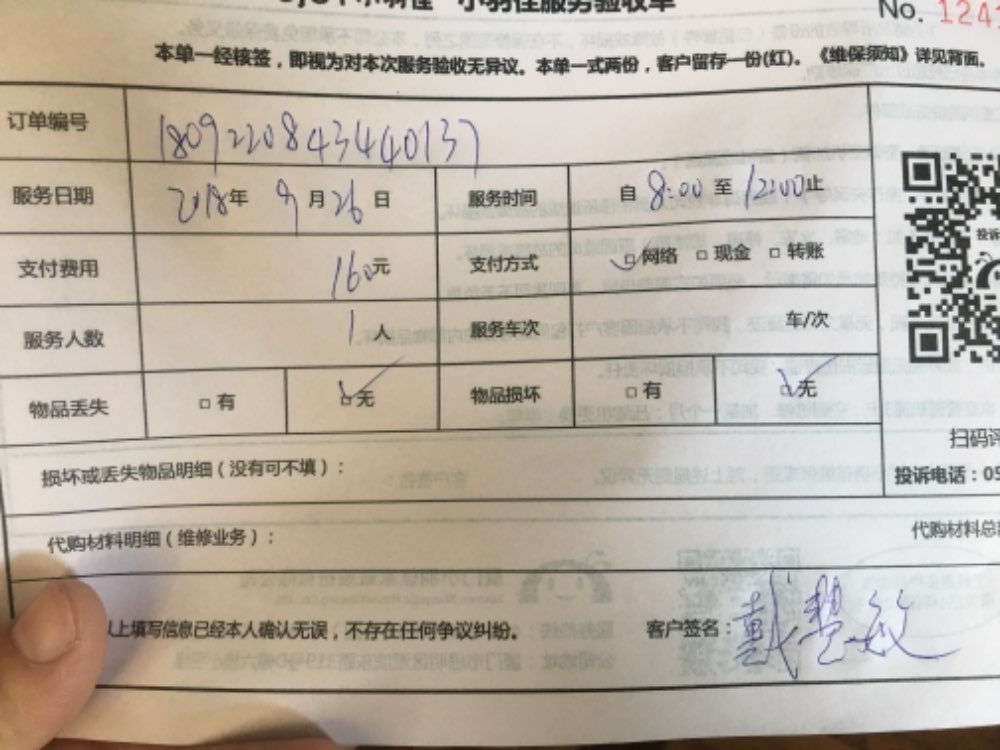 小羽佳服务验收单
No. 124
本单一经核签，即视为对本次服务验收无异议。本单一式两份，客户留存一份(红)。《维保须知》详见背面。
订单编号 1809220843440137
服务日期 2018年 9月26日 服务时间 自 8:00 至 12:00止
支付费用 160元 支付方式 □网络 □现金 □转账
服务人数 1人 服务车次 车/次
物品丢失 □有 □无 物品损坏 □有 □无
投诉
扫码评
损坏或丢失物品明细（没有可不填）：
投诉电话：05
代购材料明细（维修业务）：
代购材料总
以上填写信息已经本人确认无误，不存在任何争议纠纷。 客户签名：戴慧敏